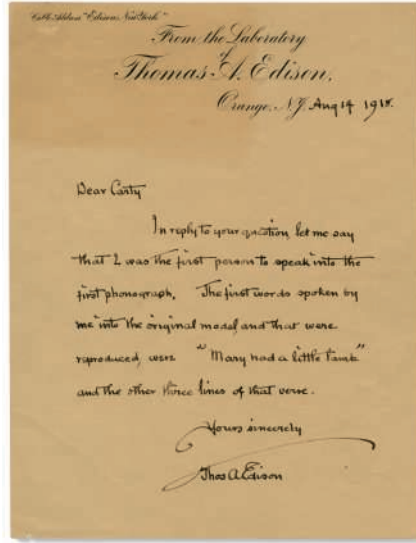 Cable Address "Edison, New York"
From the Laboratory
of
Thomas A. Edison,
Orange, N.J. Aug 14 1918.
Dear Carty
In reply to your question, let me say
that I was the first person to speak into the
first phonograph. The first words spoken by
me into the original model, and that were
reproduced, were "Mary had a little lamb"
and the other three lines of that verse.
Yours sincerely
Thos A Edison